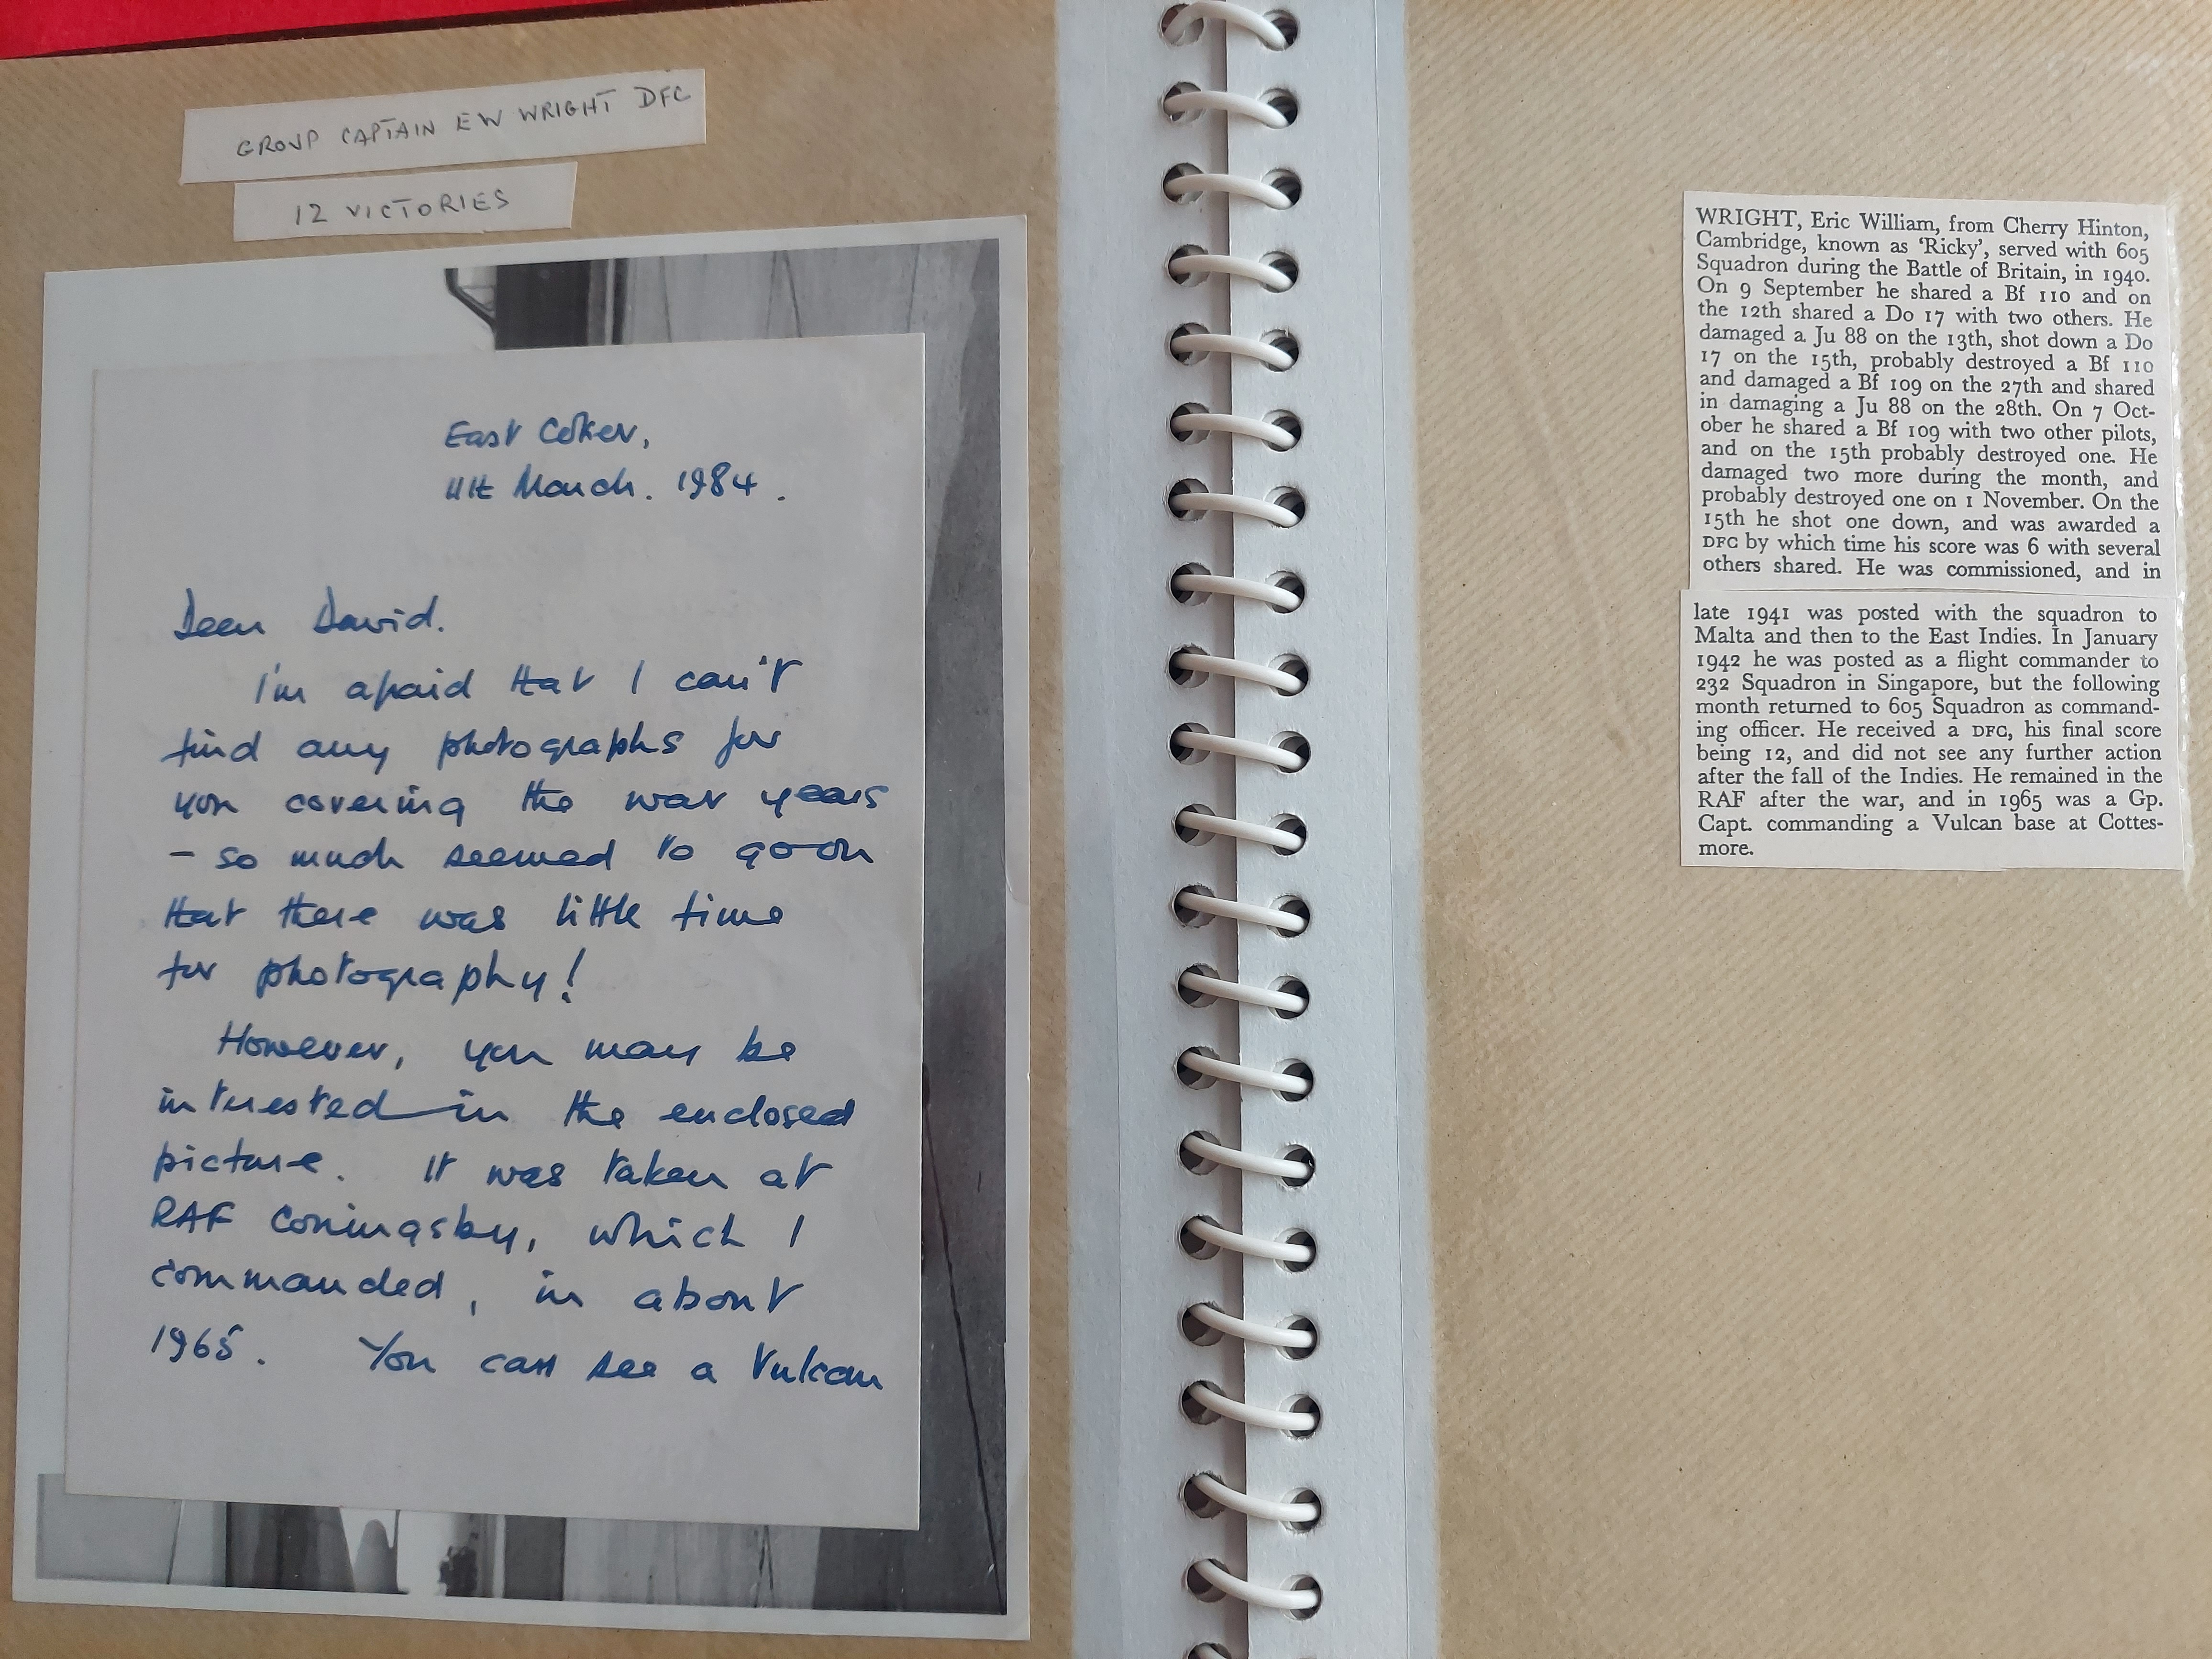 GROUP CAPTAIN EW WRIGHT DFC
12 VICTORIES
East Coker,
11th March. 1984.
Dear David.
I'm afraid that I can't
find any photographs for
you covering the war years
- so much seemed to go on
that there was little time
for photography!
However, you may be
interested in the enclosed
picture. It was taken at
RAF Coningsby, which I
commanded, in about
1965. You can see a Vulcan
WRIGHT, Eric William, from Cherry Hinton,
Cambridge, known as ‘Ricky’, served with 605
Squadron during the Battle of Britain, in 1940.
On 9 September he shared a Bf 110 and on
the 12th shared a Do 17 with two others. He
damaged a Ju 88 on the 13th, shot down a Do
17 on the 15th, probably destroyed a Bf 110
and damaged a Bf 109 on the 27th and shared
in damaging a Ju 88 on the 28th. On 7 Oct-
ober he shared a Bf 109 with two other pilots,
and on the 15th probably destroyed one. He
damaged two more during the month, and
probably destroyed one on 1 November. On the
15th he shot one down, and was awarded a
DFC by which time his score was 6 with several
others shared. He was commissioned, and in
late 1941 was posted with the squadron to
Malta and then to the East Indies. In January
1942 he was posted as a flight commander to
232 Squadron in Singapore, but the following
month returned to 605 Squadron as command-
ing officer. He received a DFC, his final score
being 12, and did not see any further action
after the fall of the Indies. He remained in the
RAF after the war, and in 1965 was a Gp.
Capt. commanding a Vulcan base at Cottes-
more.